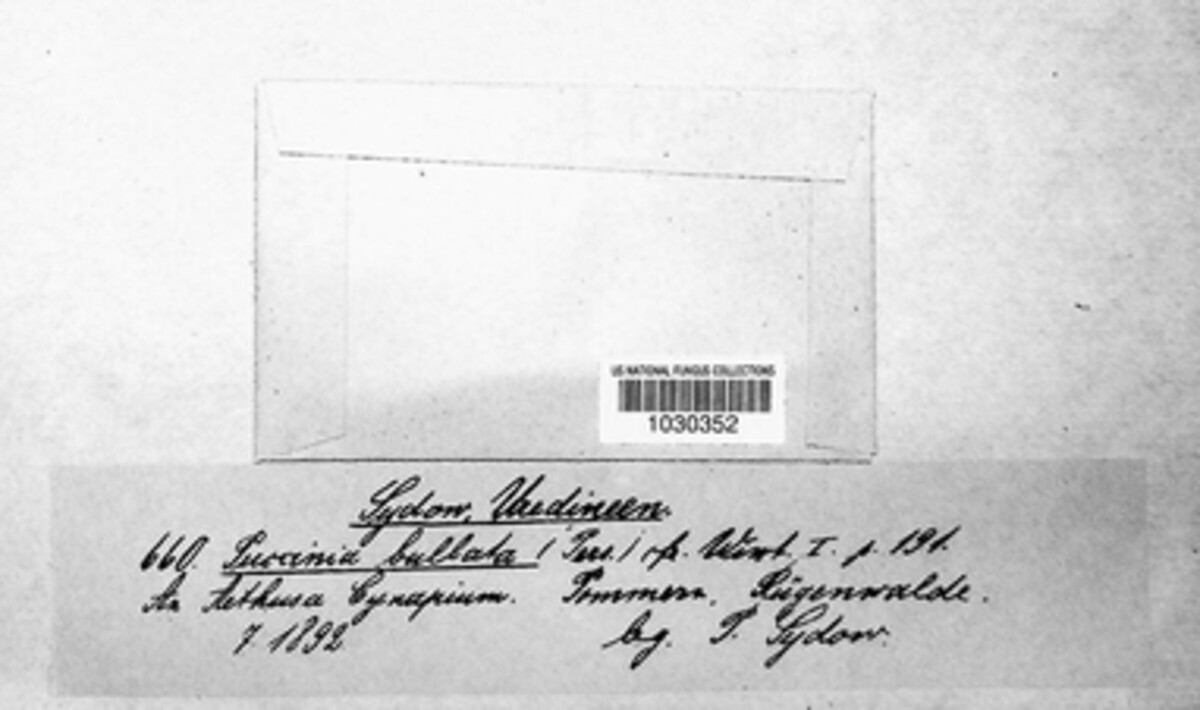 US NATIONAL FUNGUS COLLECTIONS
1030352
Sydow, Uredineen.
660. Puccinia bullata (Pers.) cfr. Wint. I. p. 191.
An Aethusa Cynapium. Pommern, Rügenwalde.
7. 1892 lg. P. Sydow.